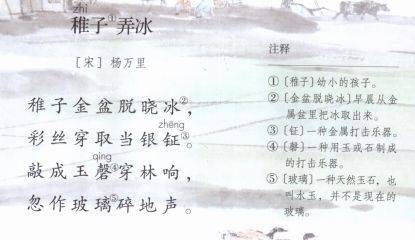 zhì
稚子①弄冰
[宋] 杨万里
稚子金盆脱晓冰②，
zhēng
彩丝穿取当银钲③。
qìng
敲成玉磬④穿林响，
忽作玻璃⑤碎地声。
注释
①〔稚子〕幼小的孩子。
②〔金盆脱晓冰〕早晨从金
属盆里把冰取出来。
③〔钲〕一种金属打击乐器。
④〔磬〕一种用玉或石制成
的打击乐器。
⑤〔玻璃〕一种天然玉石，也
叫水玉，并不是现在的
玻璃。